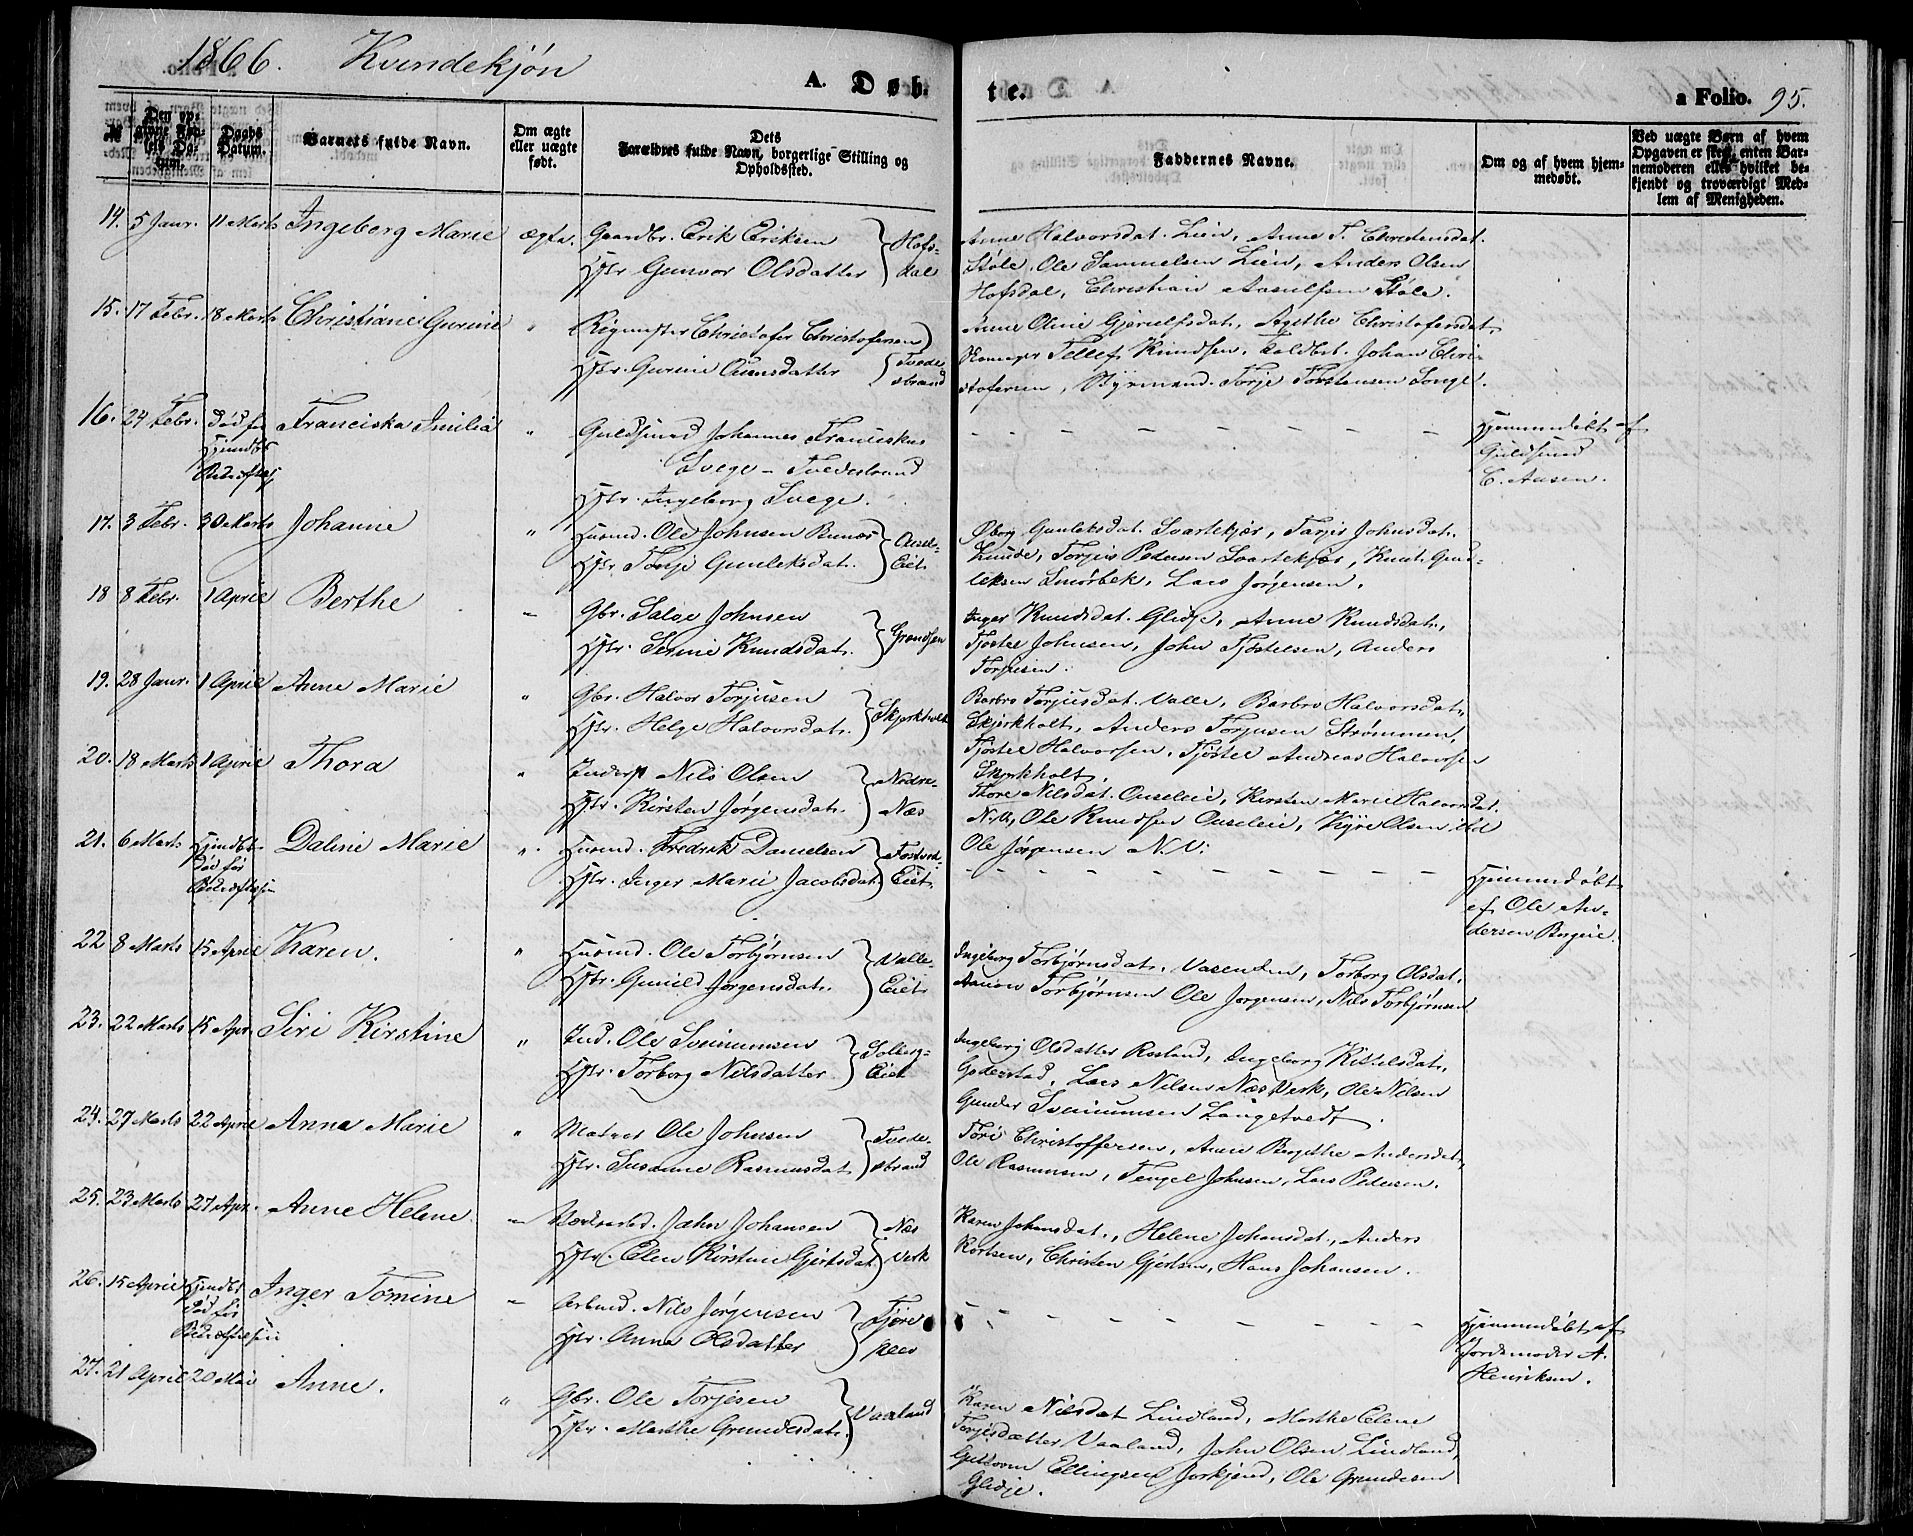 1866. Kvindekjøn
A. Døbte.
a Folio. 95.
№
Den opgivne Fødsels Datum.
Daabs Datum.
Barnets fulde Navn.
Om ægte eller uægte født.
Dets Forældres fulde Navn, borgerlige Stilling og Opholdssted.
Faddernes Navne.
Om og af hvem hjemmedøbt.
Ved uægte Børn af hvem Opgaven er skeet, enten Barnemoderen eller hvilket bekjendt og troværdigt Medlem af Menigheden.
14. 5 Janr. 11 Marts Ingeborg Marie ægte. Gaardbr. Erik Eriksen
Hstr. Gunvor Olsdatter
Hofsdal
Anne Halvorsdat. Lien, Anne T. Christensdat.
Støle, Ole Samuelsen Lien, Anders Olsen
Hofsdal, Christian Støle.
15. 17 Febr. 18 Marts Christiane Gurine " Christofer Christofersen
Hstr. Gurine
Tvedestrand
Anne Oline Gjerulfsdat, Agethe Christofersdat.
Tellef Knudsen, Toldbet. Johan Christofersen, Styrmand Torje Torstensen Songe.
16. 24 Febr. Død før Hjemdbs Bekræftelse Franciska Emilia " Guldsmed Johannes Franciskus
Svege - Tvedestrand
Hstr. Ingeborg Svege.
Hjemmedøbt af
Guldsmed
C. Ausen.
17. 3 Febr. 30 Marts Johanne " Husmd. Ole Johnsen
Hstr. Tonje Gunleksdat.
Eiet
Gunleksdat. Svartekjær, Tarjer Johnsdat.
Lunde, Torjus Pedersen Svartekjær, Knut Gunleksen Smørbek, Lars Jørgensen.
18 8 Febr. 1 April Berthe " Gbr. Salve Johnsen
Hstr. Serine Knudsdat.
Inger Knudsdat. Glidje, Anne Knudsdat,
Tjøstel Johnsen, John Tjøstelsen, Anders
Torjusen.
19. 28 Janr. 1 April Anne Marie " Gbr. Halvor Torjusen
Hstr. Helge Halvorsdat.
Skjerkholt
Barbro Torjusdat. Valle, Barbro Halvorsdat.
Skjerkholt, Anders Torjusen Strømmen,
Tjøstel Halvorsen, Tjøstel Andreas Halvorsen
Skjerkholt.
20. 18 Marts 1 April Thora " Inderst Nils Olsen
Hstr. Kirsten Jørgensdat.
Nedre-
Næs
Thore Nilsdat. Ouseleie, Kirsten Marie Halvorsdat.
N.V., Ole Knudsen Ouseleie, Olsen
Ole Jørgensen N.V.
21. 6 Marts Hjemdbt. Død før Bekræftelsen Daline Marie " Husmd. Fredrik Danielsen
Hstr. Inger Marie Jacobsdat.
Eiet
Hjemmedøbt
af Ole Andersen Bergeie.
22 8 Marts 15 April Karen. " Husmd. Ole Torbjørnsen
Hstr. Gunild Jørgensdat.
Valle-
Eiet
Ingeborg Torbjørnsdat, Vasenden, Torborg Olsdat.
Aanon Torbjørnsen Ole Jørgensen, Nils Torbjørnsen
23. 22 Marts 15 Apr. Siri Kirstine " Ind. Ole Sveinumsen
Hstr. Torborg Nilsdatter
Solberg-
Eiet
Ingeborg Olsdatter Rosland, Ingeborg Kittelsdat.
Goderstad, Lars Nilsen Næs Verk, Ole Nilsen
Gunder Sveinumsen Langetvedt.
24. 27 Marts 22 April Anna Marie " Matros Ole Johnsen
Hstr. Susanne Rasmusdat.
Tvedestrand
Tori Christoffersen, Anne Birgithe Andersdat.
Ole Rasmussen, Tengel Johnsen, Lars Pedersen.
25. 23 Marts 27 Apr. Anne Helene " Jahn Johansen
Hstr. Elen Kirstine Gjertsdat
Næs
Verk
Karen Johansdat., Helene Johansdat., Anders
Kortsen, Christen Gjertsen, Hans Johansen.
26. 15 April Hjemdbt. Død før Bekræftelsen Inger Tomine " Arbmd. Nils Jørgensen
Hstr. Anna Olsdatter
Hjemmedøbt af
Jordemoder A.
Henriksen.
27. 21 April 20 Mai Anne. " Gbr. Ole Torjesen
Hstr. Marthe Grundesdat.
Vaaland
Karen Nilsdat Lindland, Marthe Elene
Torjesdatter Vaaland, John Olsen Lindland,
Guttorm Ellingsen, Ole Grundesen
Glidje.